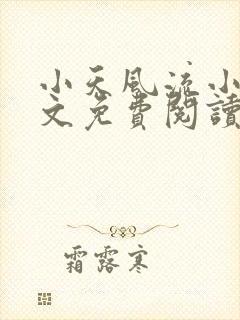 小天風流小
文免費閱讀
霜露寒